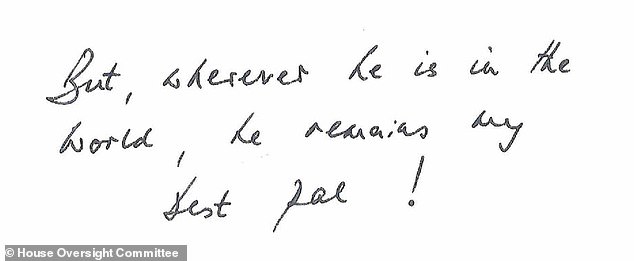 But, wherever he is in the
world, he remains my
best pal !
© House Oversight Committee